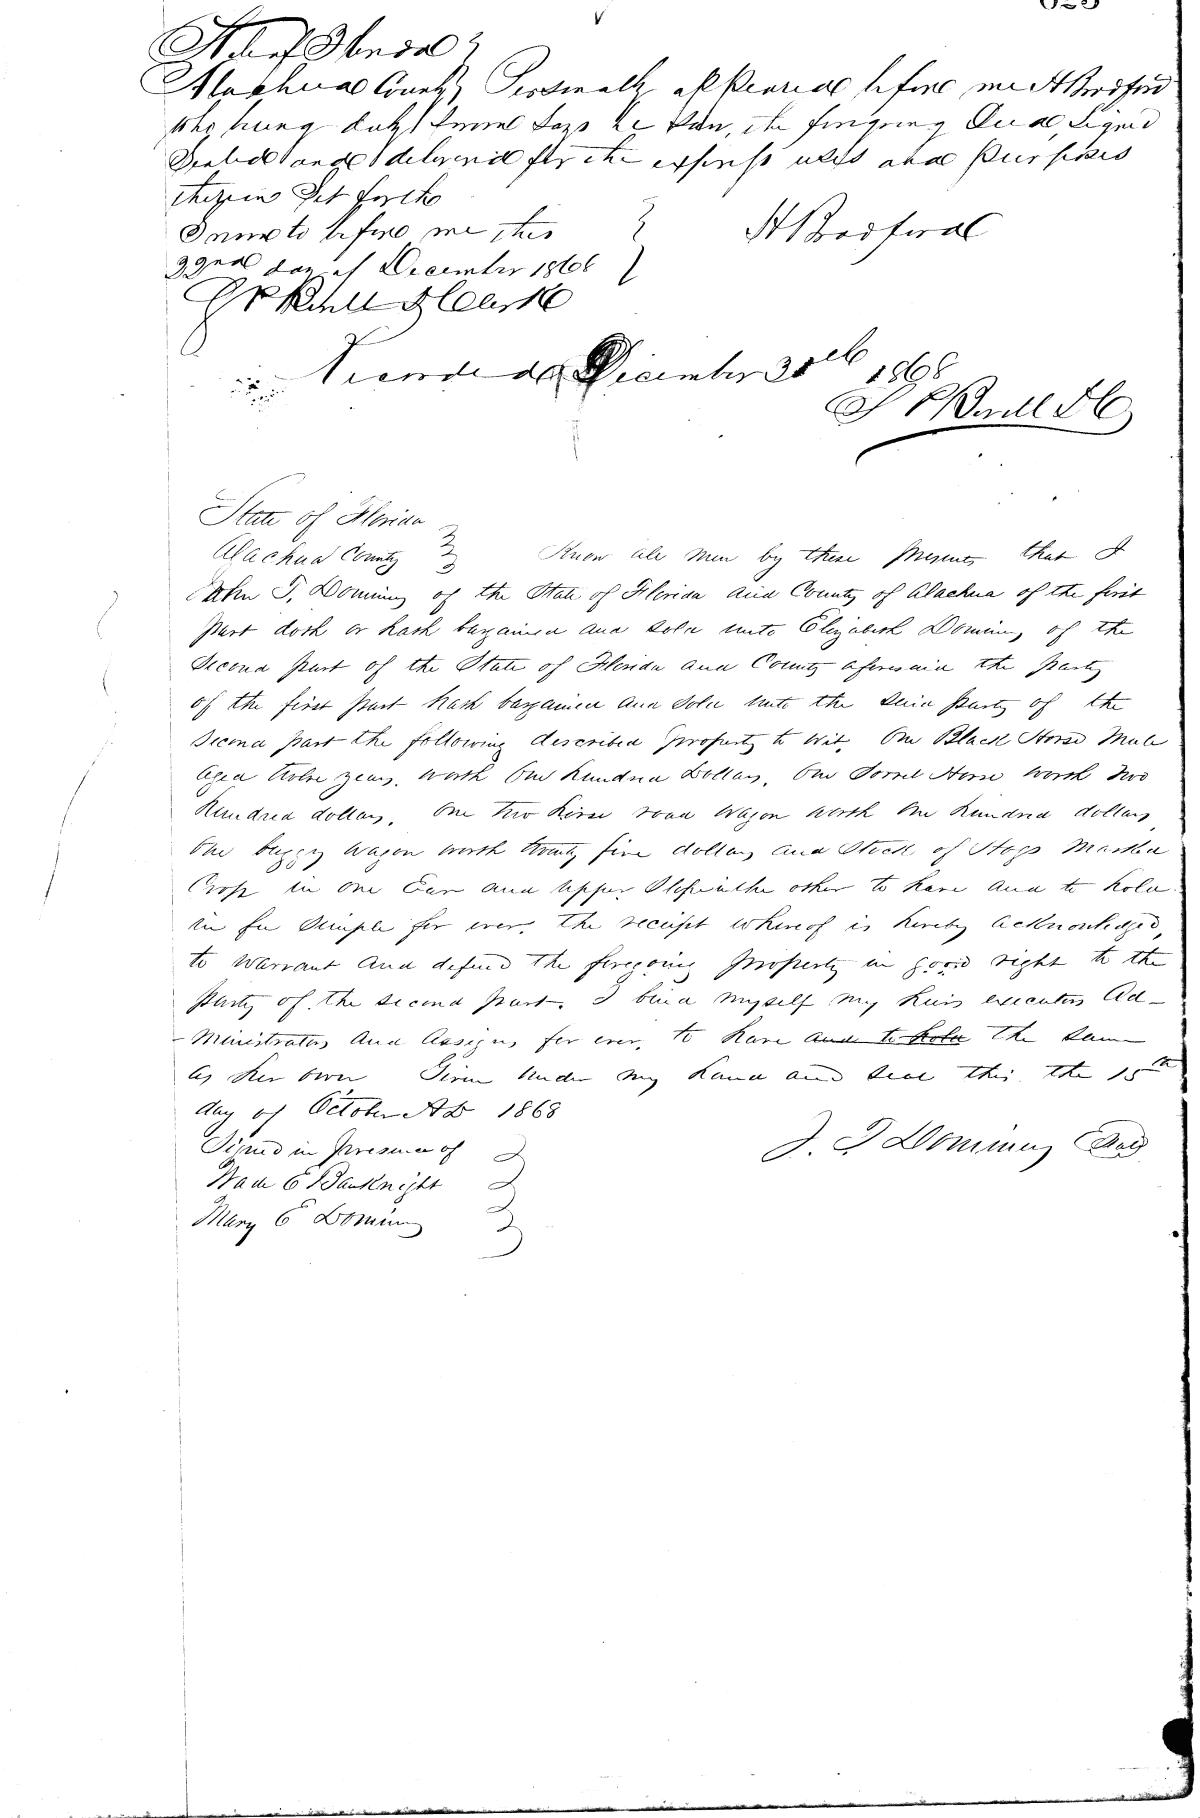 State of Florida
Alachua County Personally appeared before me H Bradford
who being duly sworn says he saw the foregoing Deed Signed
Sealed and delivered for the express uses and purposes
therein Set forth
Sworn to before me this
22nd day of December 1868
H Bradford
Clerk
Recorded December 30th 1868
State of Florida
Alachua County Know all men by these presents that I
John T. Domining of the State of Florida and County of Alachua of the first
part doth or hath bargained and sold unto Elizabeth Domining of the
Second part of the State of Florida and County aforesaid the party
of the first part hath bargained and sold unto the said party of the
Second part the following described property to wit, One Black Horse Mule
aged twelve years, worth One hundred Dollars, One Sorrel Horse worth two
hundred dollars, One two horse road wagon worth One hundred dollars,
One buggy wagon worth twenty five dollars and Stock of Hogs marked
Crop in one Ear and upper Slope in the other to have and to hold
in fee Simple for ever, the receipt whereof is hereby acknowledged,
to warrant and defend the foregoing property in good right to the
party of the second part, I bind myself my heirs executors Ad-
-ministrators and Assigns for ever, to have and to hold the same
as her own Given under my hand and seal this the 15th
day of October AD 1868
Signed in presence of
J. T Domining Seal
Wade E Bauknight
Mary E Domining